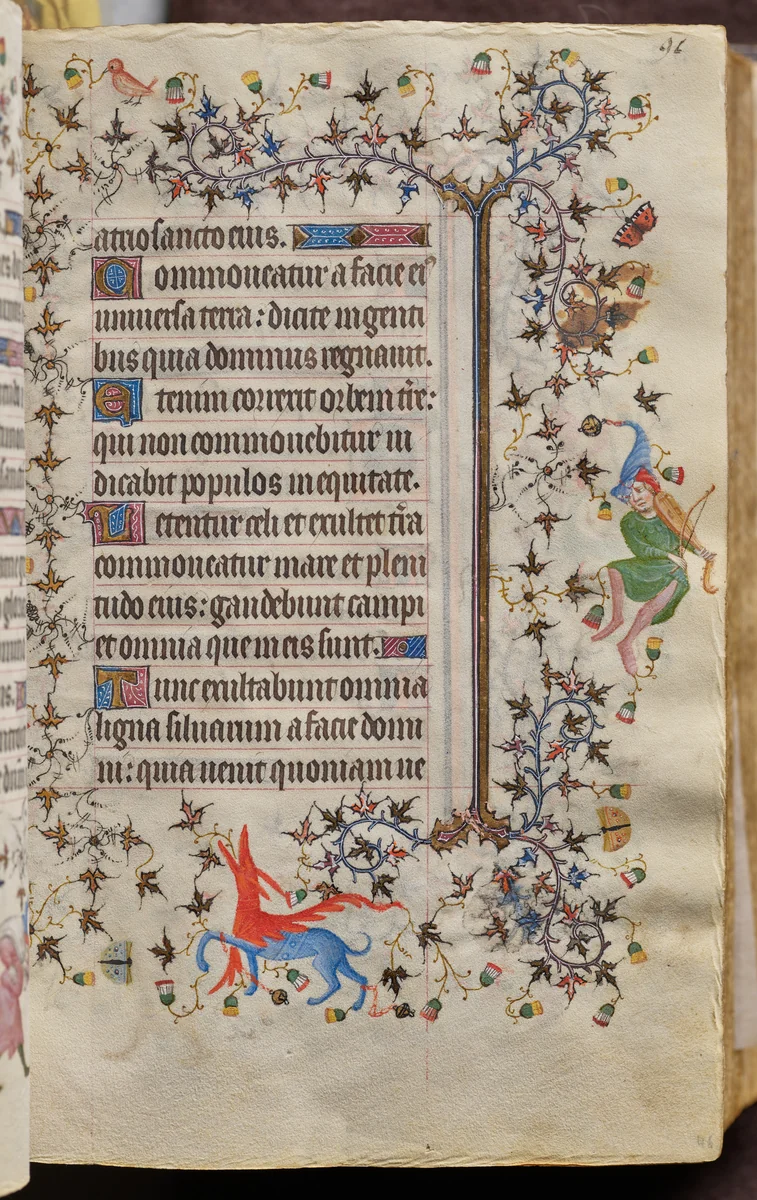 96
atrio sancto eius.
Commoueatur a facie ei᾽
uniuersa terra: dicite in genti
bus quia dominus regnauit.
Etenim correxit orbem tr̄e:
qui non commouebitur iu
dicabit populos in equitate.
Letentur celi et exultet tr̄a
commoueatur mare et pleni
tudo eius: gaudebunt campi
et omnia que in eis sunt.
Tunc exultabunt omnia
ligna siluarum a facie domi
ni: quia uenit quoniam ue